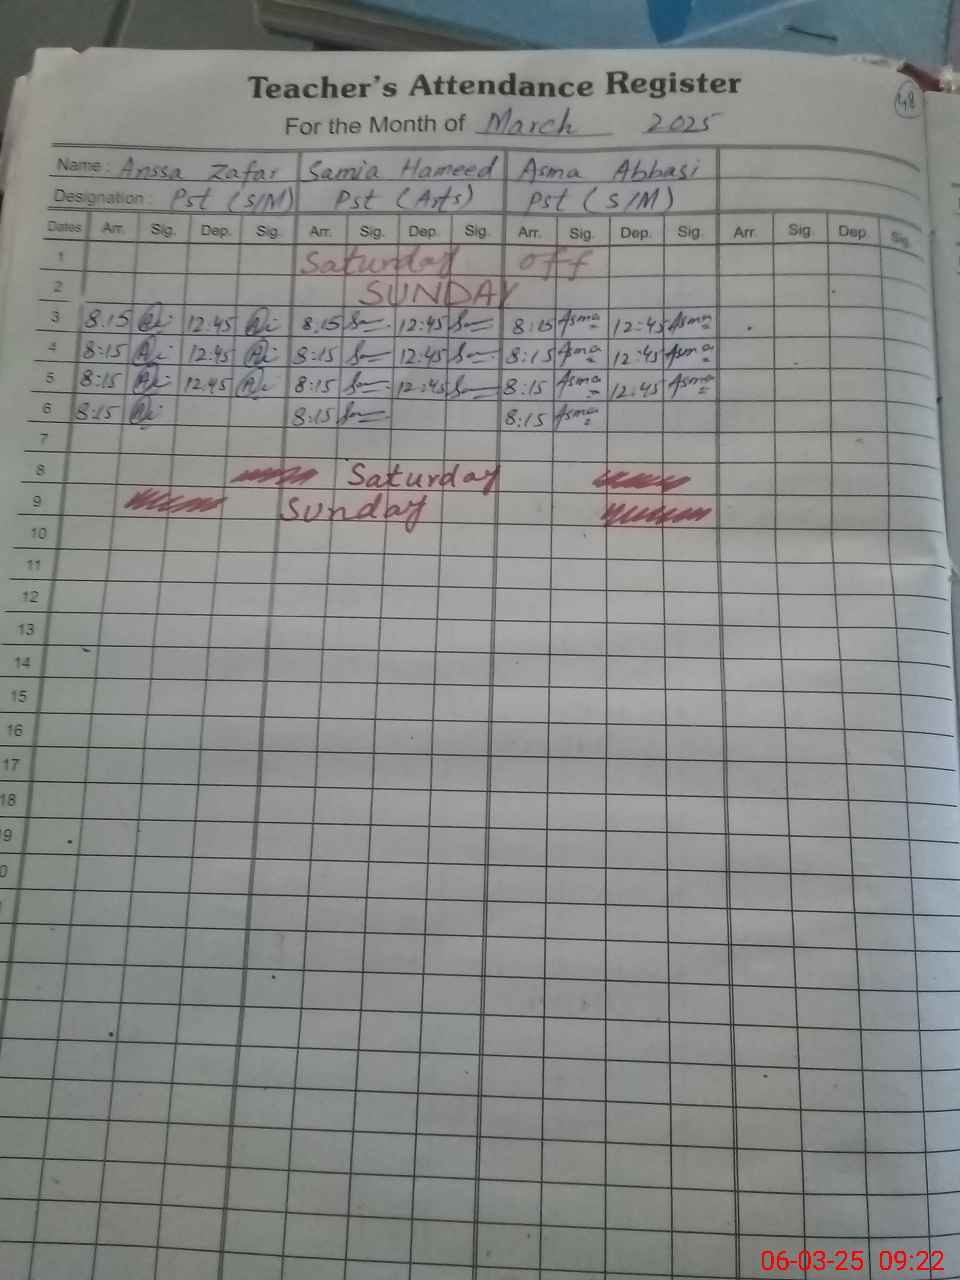 Teacher's Attendance Register
48
For the Month of March 2025
Name: Anssa Zafar Samia Hameed Asma Abbasi
Designation: Pst (S/M) Pst (Arts) Pst (S/M)
Dates Arr. Sig. Dep. Sig. Arr. Sig. Dep. Sig. Arr. Sig. Dep. Sig. Arr. Sig. Dep. Sig.
1 Saturday off
2 SUNDAY
3 8.15 12:45 8:15 12:45 8:15 Asma 12:45 Asma
4 8:15 12:45 8:15 12:45 8:15 Asma 12:45 Asma
5 8:15 12.45 8:15 12:45 8:15 Asma 12:45 Asma
6 8:15 8:15 8:15 Asma
7
8 Saturday
9 Sunday
10
11
12
13
14
15
16
17
18
9
0
06-03-25 09:22